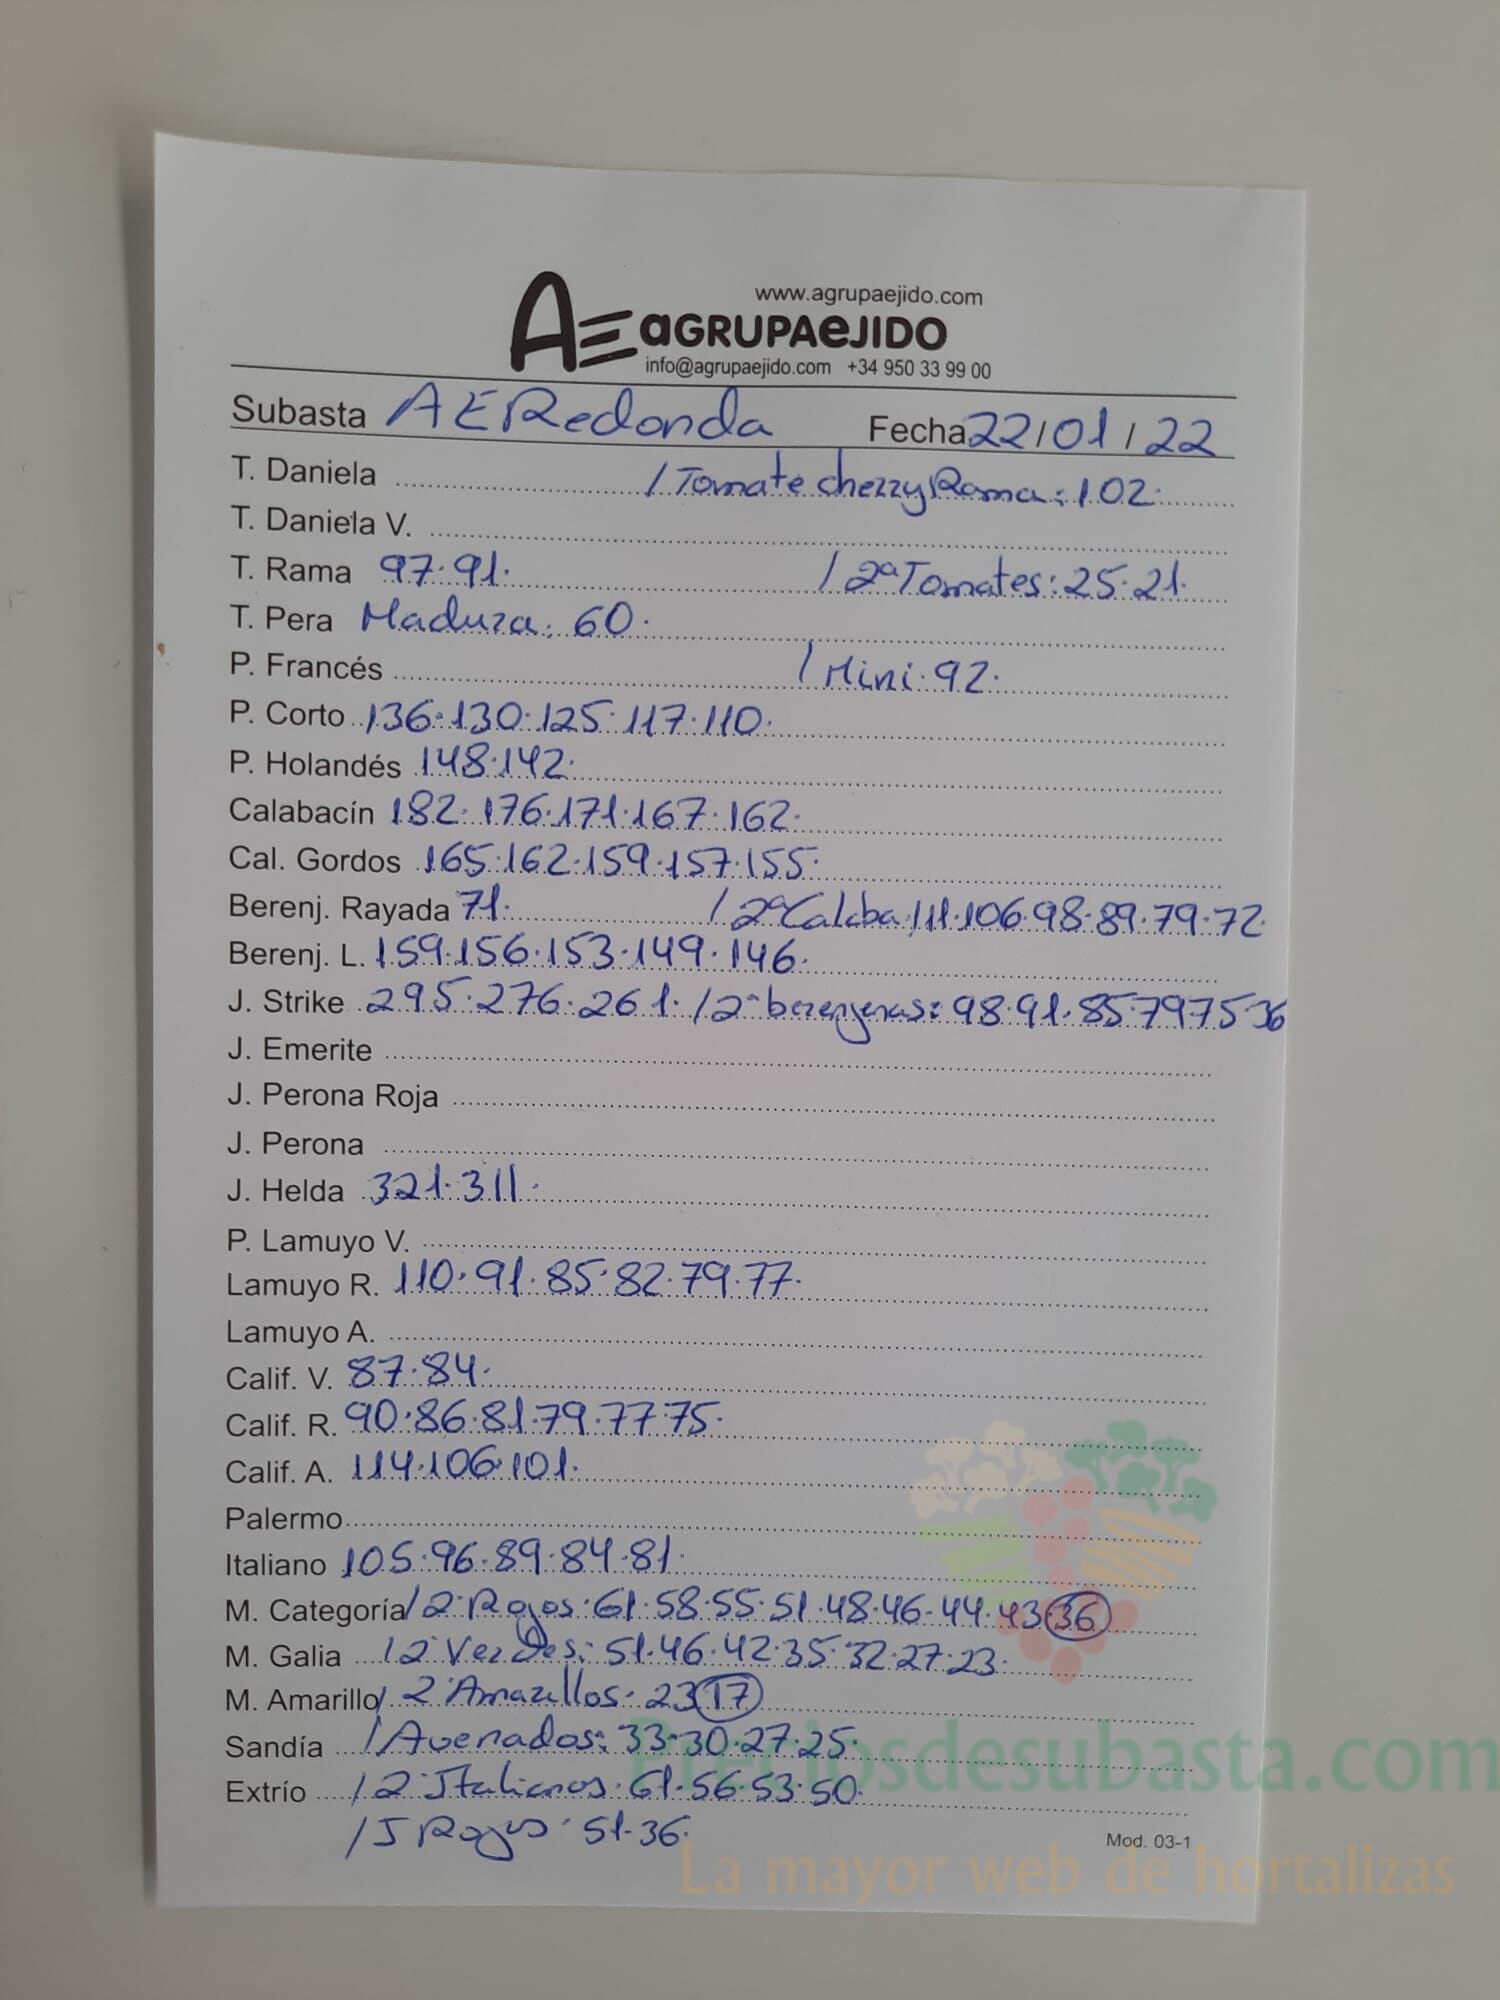 www.agrupaejido.com
AE aGRUPAeJIDO
info@agrupaejido.com +34 950 33 99 00
Subasta AERedonda Fecha 22/01/22
T. Daniela / Tomate cherry Rama: 102.
T. Daniela V.
T. Rama 97.91. / 2ª Tomates: 25.21.
T. Pera Madura: 60.
P. Francés / Mini: 92.
P. Corto 136.130.125.117.110.
P. Holandés 148.142.
Calabacín 182.176.171.167.162.
Cal. Gordos 165.162.159.157.155.
Berenj. Rayada 71. / 2ª Calaba: 111.106.98.89.79.72
Berenj. L. 159.156.153.149.146.
J. Strike 295.276.261. / 2ª berenjenas: 98.91.85.79.75.36
J. Emerite
J. Perona Roja
J. Perona
J. Helda 321.311.
P. Lamuyo V.
Lamuyo R. 110.91.85.82.79.77.
Lamuyo A.
Calif. V. 87.84.
Calif. R. 90.86.81.79.77.75.
Calif. A. 114.106.101.
Palermo
Italiano 105.96.89.84.81.
M. Categoría / 2ª Rojos: 61.58.55.51.48.46.44.43.36
M. Galia / 2ª Verdes: 51.46.42.35.32.27.23.
M. Amarillo / 2ª Amarillos: 23.17
Sandía / Avenados: 33.30.27.25.
Extrío / 2ª Italianos: 61.56.53.50.
/ I Rojos: 51.36.
Mod. 03-1
Preciosdesubasta.com
La mayor web de hortalizas